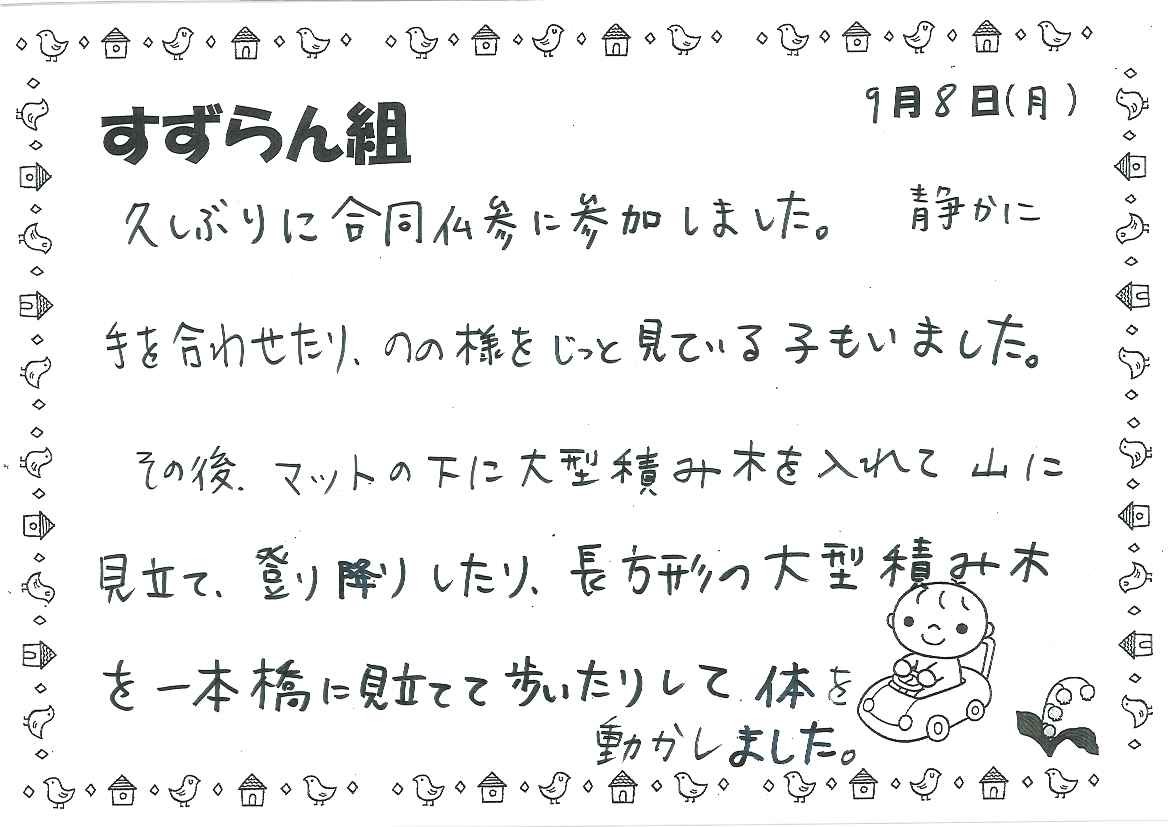 9月8日(月)
すずらん組
久しぶりに合同仏参に参加しました。 静かに
手を合わせたり、のの様をじっと見ている子もいました。
その後、マットの下に大型積み木を入れて山に
見立て、登り降りしたり、長方形の大型積み木
を一本橋に見立てて歩いたりして体を
動かしました。